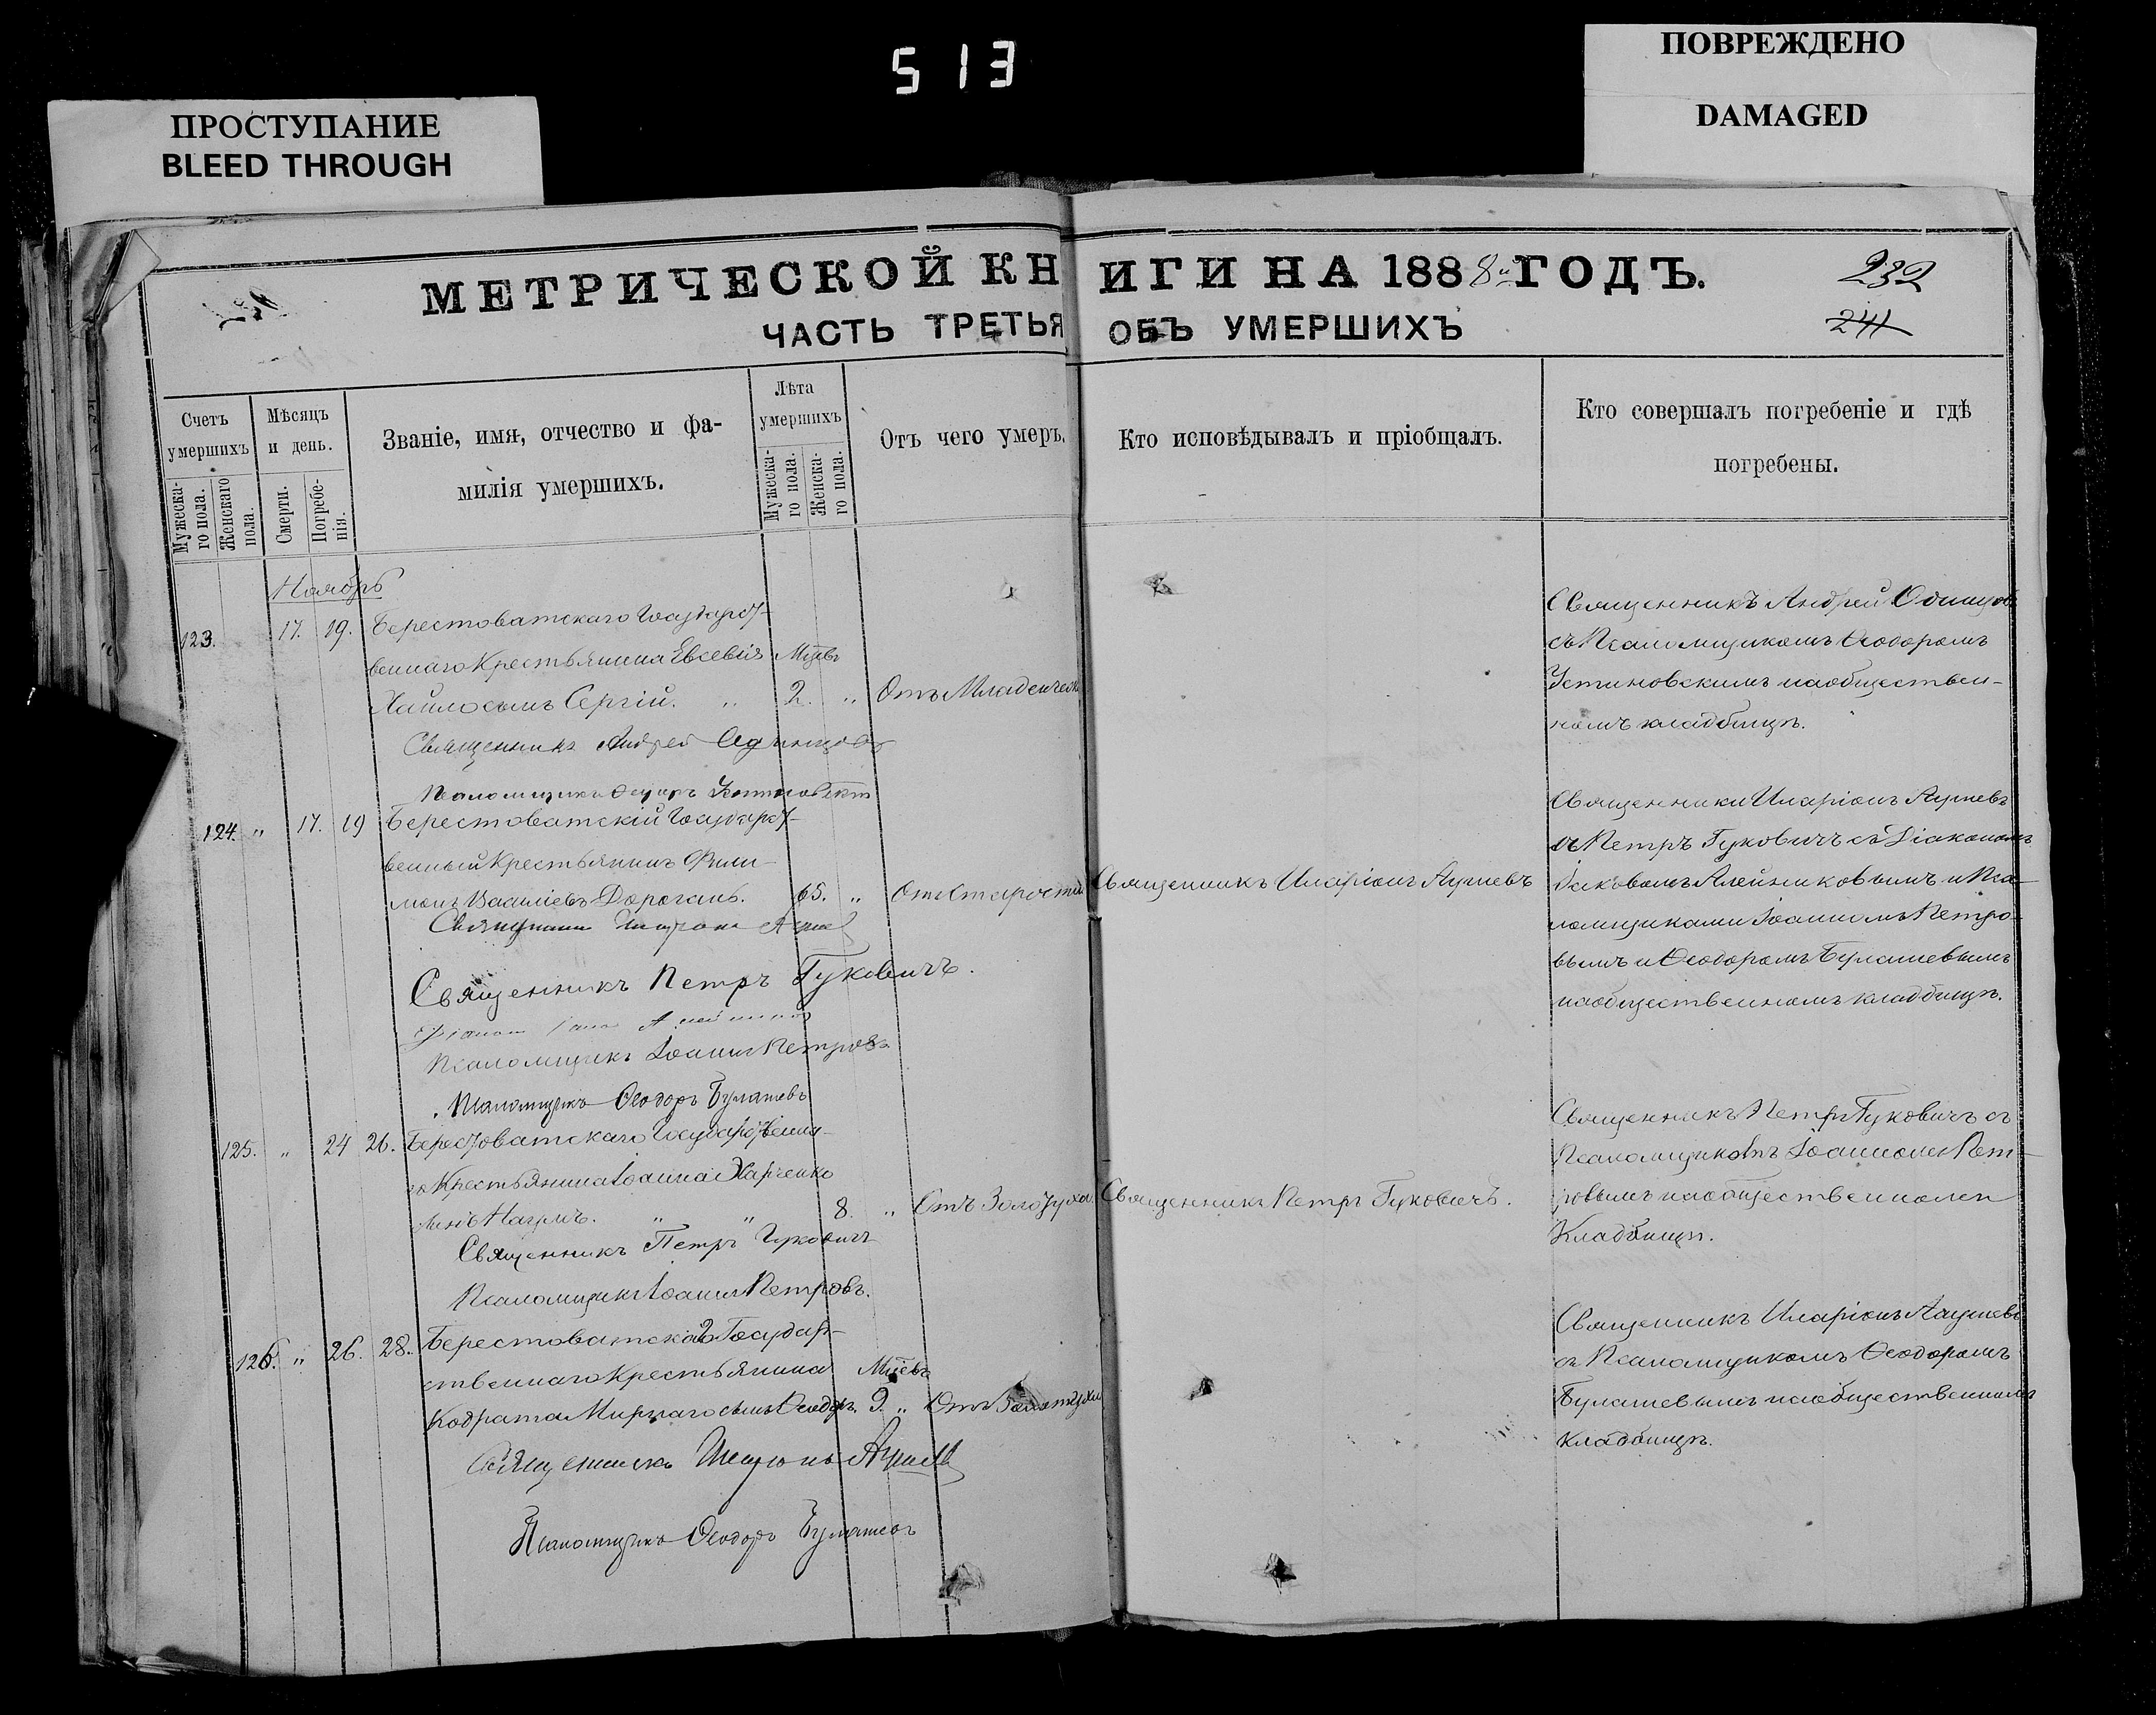 513
ПРОСТУПАНИЕ
BLEED THROUGH
ПОВРЕЖДЕНО
DAMAGED
МЕТРИЧЕСКОЙ КНИГИ НА 1888й ГОДЪ.
232
241
ЧАСТЬ ТРЕТЬЯ ОБЪ УМЕРШИХЪ
Счетъ умершихъ
Мужеска-го пола.
Женскаго пола.
Мѣсяцъ и день.
Смерти.
Погребе-нія.
Званіе, имя, отчество и фа-
милія умершихъ.
Лѣта умершихъ
Мужеска-го пола.
Женска-го пола.
Отъ чего умеръ.
Кто исповѣдывалъ и пріобщалъ.
Кто совершалъ погребеніе и гдѣ
погребены.
Ноябрь
123. 17. 19. Берестоватскаго Государст-
веннаго Крестьянина Евсевія Мцвъ
сынъ Сергій. „ 2. „ Отъ Младенческ
Священникъ Андрей Одинцовъ
Псаломщикъ Ѳеодоръ Устиновскій
Священникъ Андрей Одинцовъ
съ Псаломщикомъ Ѳеодоромъ
Устиновскимъ на обществен-
номъ кладбищѣ.
124. „ 17. 19 Берестоватскій Государст-
венный Крестьянинъ Фили-
монъ Василіевъ Дорогань. 65. „ Отъ Старости
Священникъ Иларіонъ
Священникъ Петръ Гуковичъ.
Псаломщикъ Іоаннъ Петровъ
Псаломщикъ Ѳеодоръ Булашевъ
Священникъ Иларіонъ
Священники Иларіонъ
и Петръ Гуковичъ съ Діакономъ
Алейниковымъ и Пса-
ломщиками Іоанномъ Петро-
вымъ и Ѳеодоромъ Булашевымъ
на общественномъ кладбищѣ.
125. „ 24 26. Берестоватскаго Государственна-
го Крестьянина Іоанна Харченко
сынъ Наумъ. „ „ 8. „ Отъ Золотухи
Священникъ Петръ Гуковичъ
Псаломщикъ Іоаннъ Петровъ.
Священникъ Петръ Гуковичъ.
Священникъ Петръ Гуковичъ съ
Псаломщикомъ Іоанномъ Пет-
ровымъ на общественномъ
Кладбищѣ.
126. „ 26. 28. Берестоватскаго Государ-
ственнаго Крестьянина Мцевъ
Кодрата Мирнаго сынъ Ѳеодоръ. 2. „ Отъ Золотухи
Священникъ Иларіонъ
Псаломщикъ Ѳеодоръ Булашевъ
Священникъ Иларіонъ
съ Псаломщикомъ Ѳеодоромъ
Булашевымъ на общественномъ
кладбищѣ.